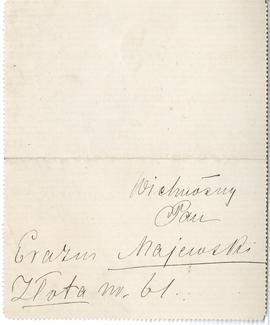 Wielmożny
Pan
Erazm Majewski
Złota nr. 61.